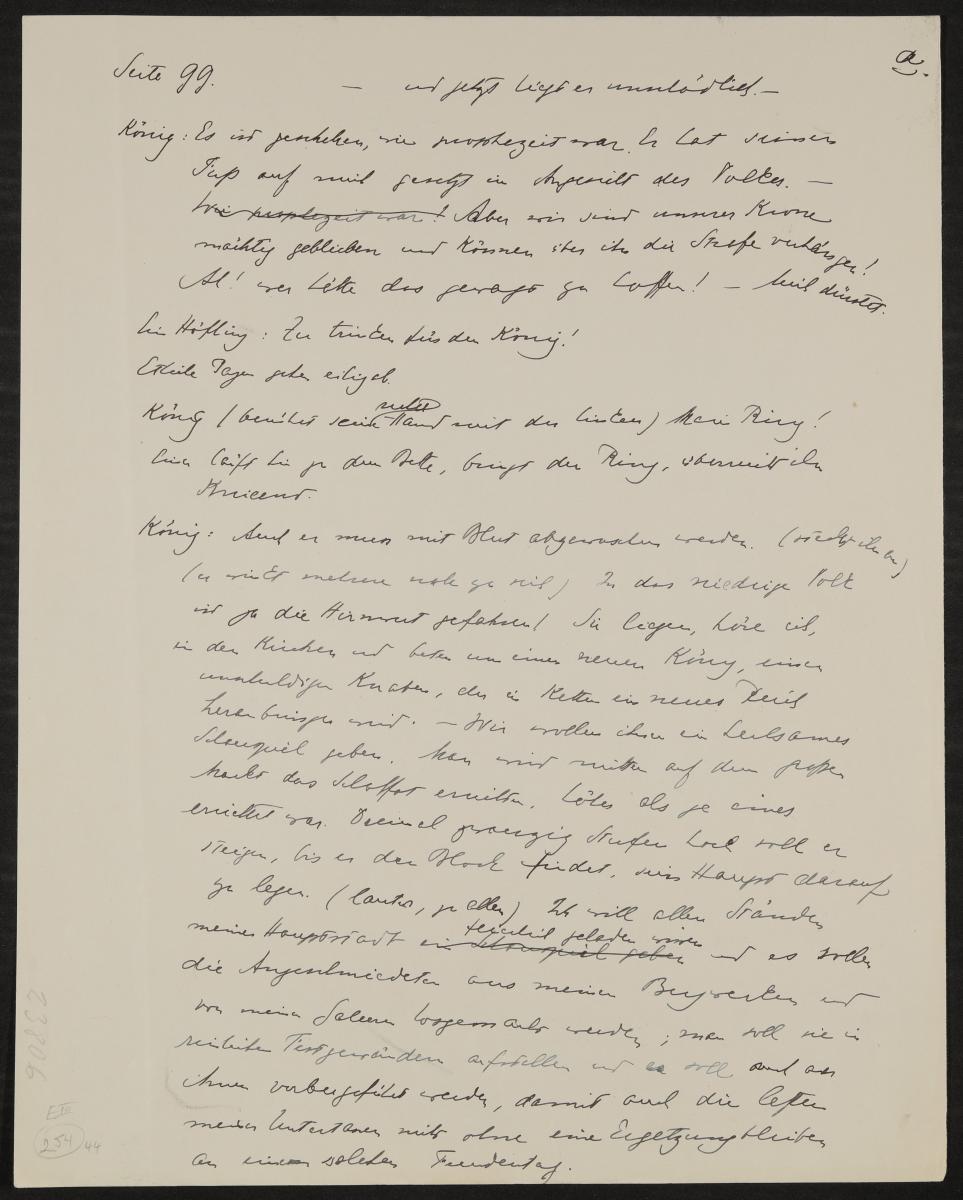 Seite 99.
a.
— und jetzt liegt er unschädlich. —
König: Es ist geschehen, wie prophezeit war. Er hat seinen
Fuß auf mich gesetzt im Angesicht des Volkes. —
Wie prophezeit war! Aber wir sind unserer Krone
mächtig geblieben und können über ihn die Strafe verhängen!
Ah! wer hätte das gewagt zu hoffen! — Mich dürstet.
Ein Höfling: Zu trinken für den König!
Etliche Pagen gehen eilig ab.
rechte
König (berührt seine Hand mit der linken) Mein Ring!
Einer läuft hin zu dem Bette, bringt den Ring, überreicht ihn
Knieend.
König: Auch er muss mit Blut abgewaschen werden. (steckt ihn an)
(er winkt mehrere nahe zu sich) In das niedrige Volk
ist ja die Hirnwut gefahren! Sie liegen, höre ich,
in den Kirchen und beten um einen neuen König, einen
unschuldigen Knaben, der in Ketten ein neues Reich
heraufbringen wird. — Wir wollen ihnen ein heilsames
Schauspiel geben. Man wird mitten auf dem großen
Markt das Schaffot errichten, höher als je eines
errichtet war. Dreimal zwanzig Stufen hoch soll er
steigen, bis er den Block findet, sein Haupt darauf
zu legen. (lauter, zu allen) Ich will allen Ständen
feierlich geladen wissen
meiner Hauptstadt ein Schauspiel geben und es sollen
die Angeschmiedeten aus meinen Bergwerken und
von meinen Galeeren losgemacht werden; man soll sie in
reinlichen Festgewändern aufstellen und er soll auch an
ihnen vorbergeführt werden, damit auch die letzten
meiner Untertanen nicht ohne eine Ergetzung bleiben
an einem solchen Freudentag.
23806
E III
254
44